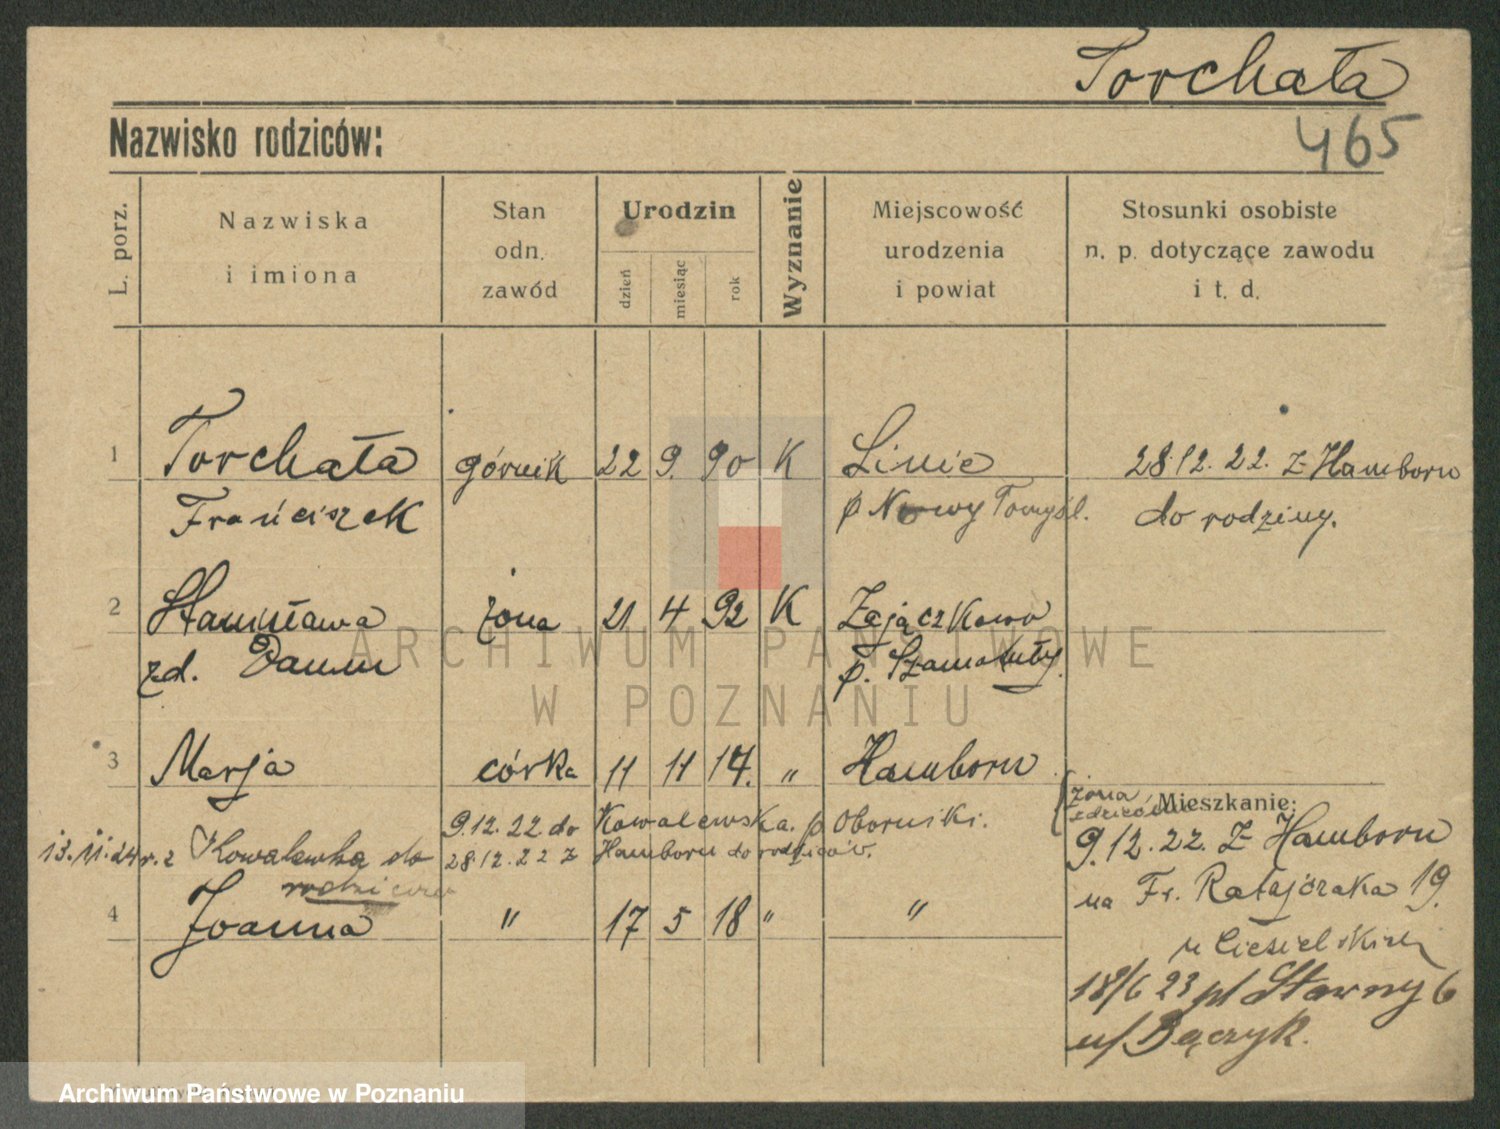 Torchała
Nazwisko rodziców:
465
L. porz.
Nazwiska
i imiona
Stan
odn.
zawód
Urodzin
dzień
miesiąc
rok
Wyznanie
Miejscowość
urodzenia
i powiat
Stosunki osobiste
n. p. dotyczące zawodu
i t. d.
1 Torchała górnik 22 9. 90 K Linie 28.12.22. z Hamborn
Franciszek p Nowy Tomyśl. do rodziny.
2 Stanisława żona 21 4 92 K Zajączkowo
zd. Damm p. Szamotuły.
3 Marja córka 11 11 14. " Hamborn
żona
Mieszkanie:
9.12.22. do Kowalewska. p Oborniki.
9.12.22. z Hamborn
13.11.24 r. z Kowalewka do
28.12.22 z Hamborn do rodziców.
rodziców
na Fr. Ratajczaka 19.
4 Joanna " 17 5 18 " "
u Ciesielskiej
18/6 23 pl Sławny 6
u/ Bączyk.
ARCHIWUM PAŃSTWOWE
W POZNANIU
Archiwum Państwowe w Poznaniu